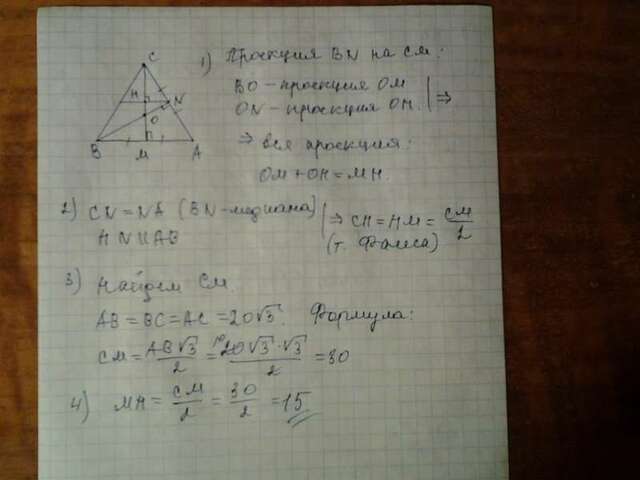 C
H
N
O
B
M
A
1) Проекция BN на CM:
BO - проекция OM
ON - проекция OH. | ⇒
⇒ вся проекция:
OM + OH = MH.
2) CN = NA (BN - медиана)
HN || AB
⇒ CH = HM = CM/2
(т. Фалеса)
3) Найдем CM.
AB = BC = AC = 20√3. Формула:
CM = AB√3/2 = 20√3·√3/2 = 30
4) MH = CM/2 = 30/2 = 15